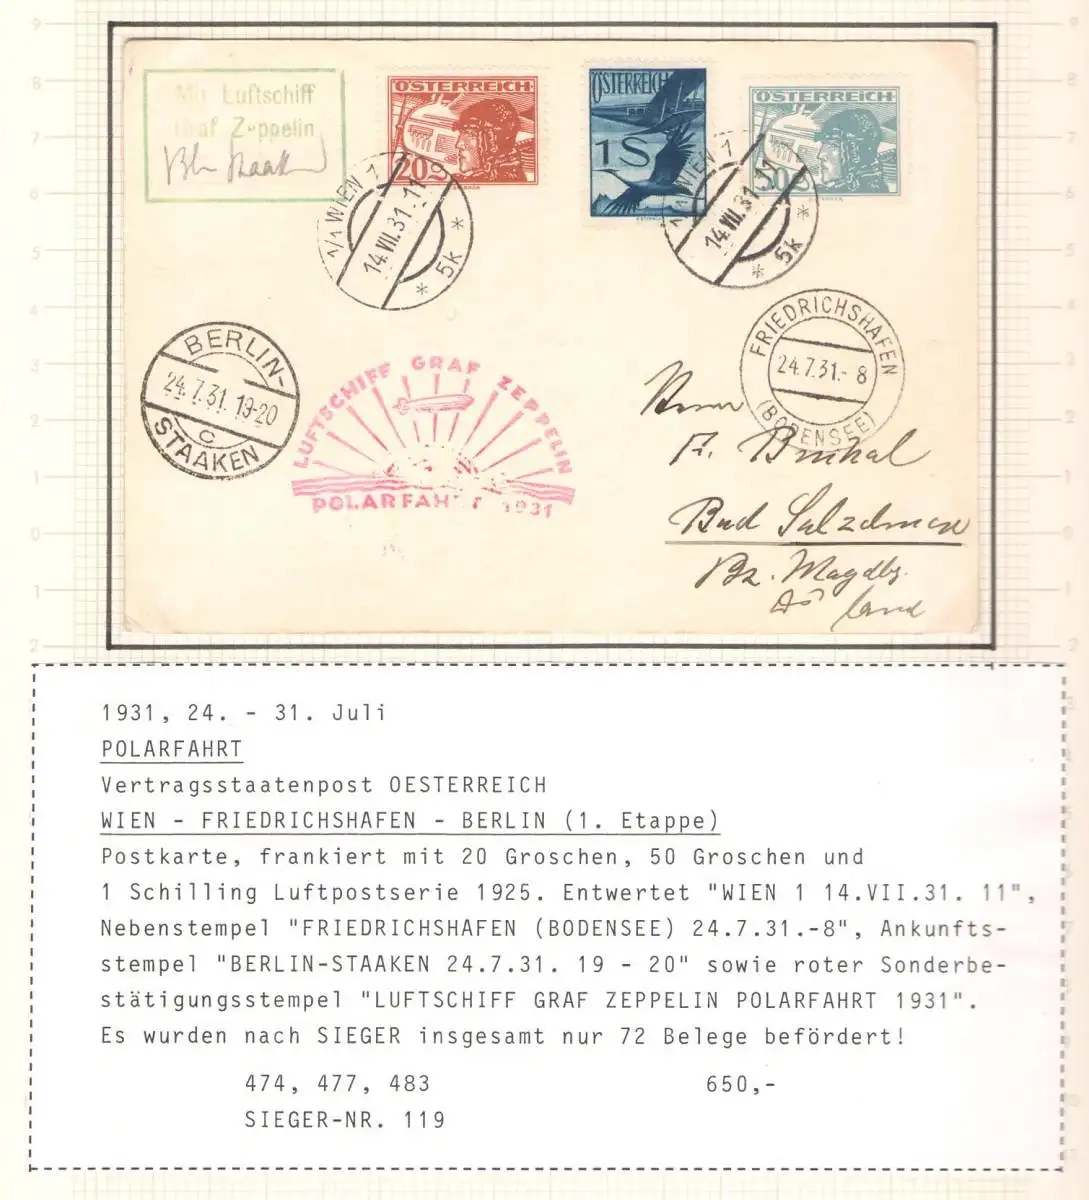 Mit Luftschiff
Graf Zeppelin
Bln Staaken
ÖSTERREICH
20
ÖSTERREICH
1S
ÖSTERREICH
50
1/1 WIEN 1
14.VII.31.11
* 5k *
1/1 WIEN 1
14.VII.31.11
* 5k *
BERLIN-
24.7.31.19-20
C
STAAKEN
LUFTSCHIFF GRAF ZEPPELIN
POLARFAHRT 1931
FRIEDRICHSHAFEN
24.7.31.-8
(BODENSEE)
Herrn
Bz. Magdbg.
9
8
7
6
5
4
3
2
1
0
1
2
1931, 24. - 31. Juli
POLARFAHRT
Vertragsstaatenpost OESTERREICH
WIEN - FRIEDRICHSHAFEN - BERLIN (1. Etappe)
Postkarte, frankiert mit 20 Groschen, 50 Groschen und
1 Schilling Luftpostserie 1925. Entwertet "WIEN 1 14.VII.31. 11",
Nebenstempel "FRIEDRICHSHAFEN (BODENSEE) 24.7.31.-8", Ankunfts-
stempel "BERLIN-STAAKEN 24.7.31. 19 - 20" sowie roter Sonderbe-
stätigungsstempel "LUFTSCHIFF GRAF ZEPPELIN POLARFAHRT 1931".
Es wurden nach SIEGER insgesamt nur 72 Belege befördert!
474, 477, 483 650,-
SIEGER-NR. 119